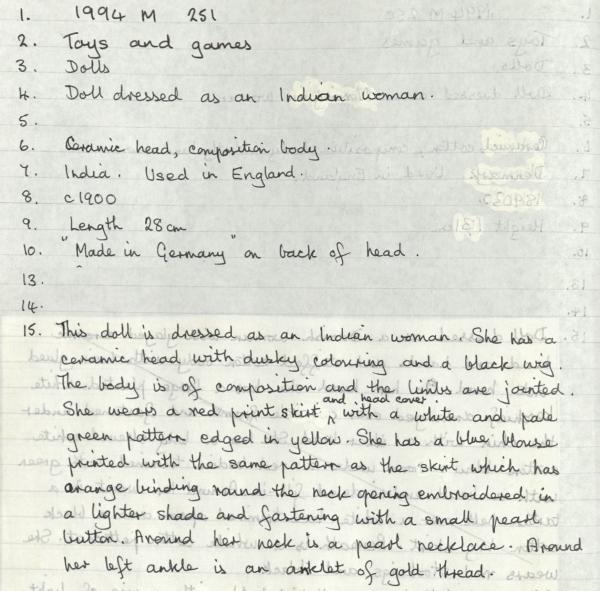 1. 1994 M 251
2. Toys and games
3. Dolls
4. Doll dressed as an Indian woman.
5.
6. Ceramic head, composition body.
7. India. Used in England.
8. c1900
9. Length 28cm
10. "Made in Germany" on back of head.
13.
14.
15. This doll is dressed as an Indian woman. She has a
ceramic head with dusky colouring and a black wig.
The body is of composition and the limbs are jointed.
She wears a red print skirt and head cover with a white and pale
green pattern edged in yellow. She has a blue blouse
printed with the same pattern as the skirt which has
orange binding round the neck opening embroidered in
a lighter shade and fastening with a small pearl
button. Around her neck is a pearl necklace. Around
her left ankle is an anklet of gold thread.